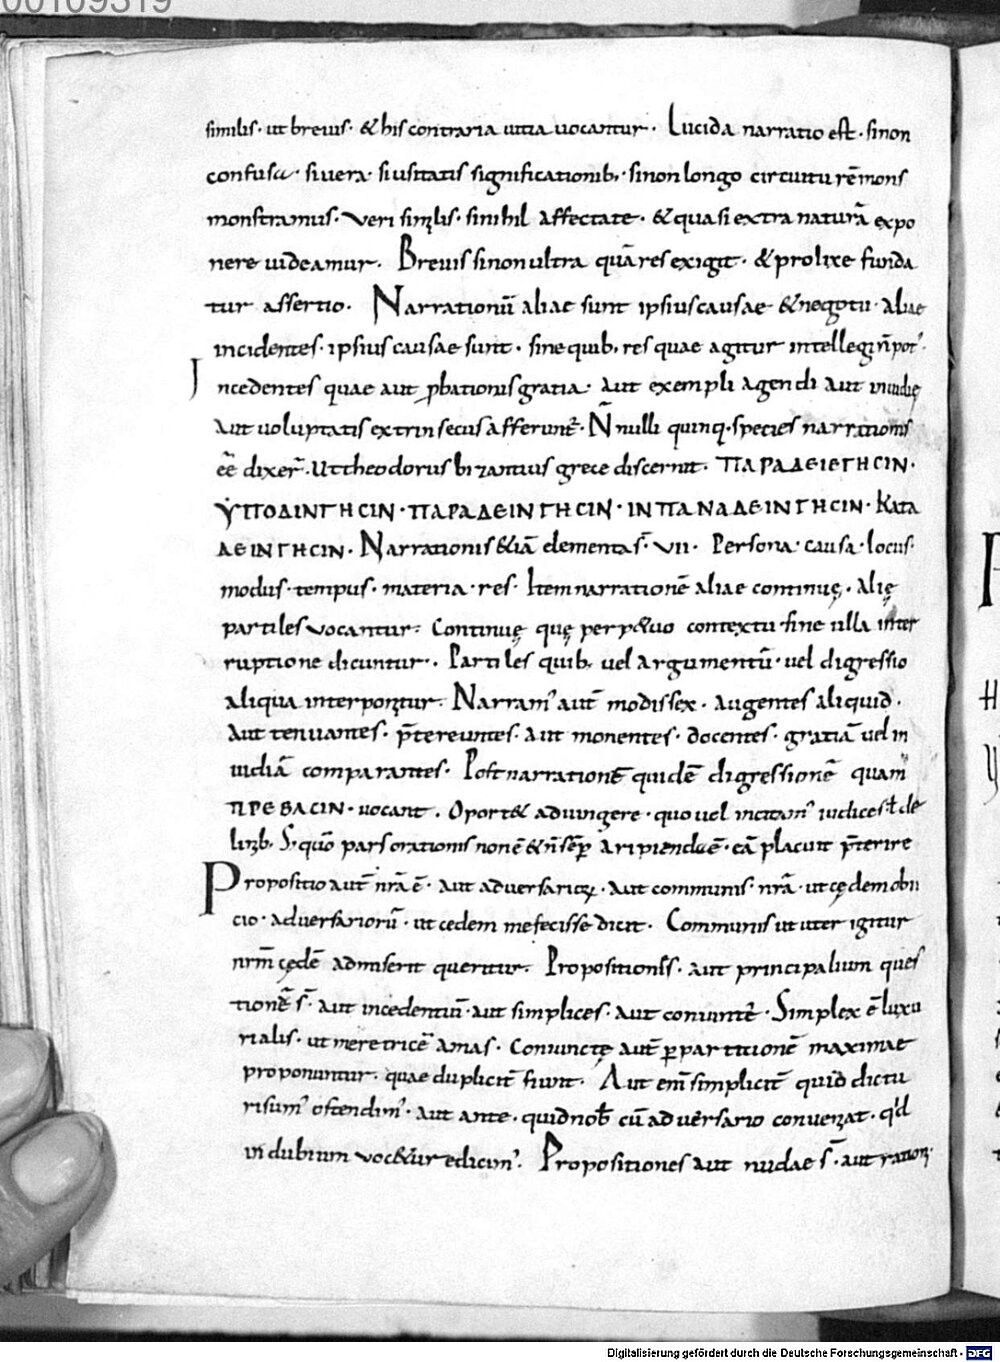 00109319
similis· ut brevis· & his contraria uitia uocantur· Lucida narratio est· si non
confusa· si uera· si usitatis significationib;· si non longo circuitu rē mons
monstramus· Veri similis· si nihil affectate· & quasi extra naturā expo
nere uideamur· Brevis si non ultra quā res exigit· & prolixe funda
tur assertio· Narrationū aliae sunt ipsius causae & negotii· aliae
incidentes· ipsius causae sunt· sine quib; res quae agitur intellegi
Incedentes quae aut pbationis gratia· aut exempli agendi aut inuidię
aut uoluptatis extrinsecus afferunt̄· N̄nulli quinq· species narrationis
eē dixer̄· Ut theodorus bizantius grece discernit· ΠΑΡΑΔΕΙΕΓΗCΙΝ·
ΥΠΟΔΙΝΓΗCΙΝ· ΠΑΡΑΔΕΙΝΓΗCΙΝ· ΙΝΠΑΝΑΔΕΙΝΓΗCΙΝ· ΚΑΤΑ
ΔΕΙΝΓΗCΙΝ· Narrationis &iā elementa s̄· VII· Persona· causa· locus·
modus· tempus· materia· res· Item narrationē aliae continuę· alię
partiles vocantur· Continuę quę perp&uo contextu sine ulla inter
ruptione dicuntur· Partiles quib; uel argumentū· uel digressio
aliqua interponitur· Narram' aut̄ modis sex· augentes aliquid·
aut tenuantes· p̄tereuntes· aut monentes· docentes· gratiā uel in
uidiā comparantes· Post narrationē quidē digressionē quam
ΠΡΕΒΑCΙΝ· uocant· Oport& adiungere· quo uel incitam' iudices ł de
S; quō pars orationis non ē & n̄ semp̄ ē· eā placuit p̄terire
Propositio aut̄ nr̄a ē· aut adversarioꝝ· aut communis· nr̄a· ut cędem obii
cio· adversariorū· ut cedem me fecisse dicit· Communis ut uter igitur
nrm̄ cędē admiserit queritur· Propositionēs· aut principalium ques
tionē s̄· aut incedentiū· aut simplices· aut coniuntę̄· Simplex ē luxu
rialis· ut meretricē amas· Coniunctę aut̄ p partitionē maximae
proponuntur· quae duplicit̄ fiunt· Aut em̄ simplicit̄ quid dictu
risum' ostendim'· aut ante· quid nob̄ cū adversario conveniat· q'd
in dubium voc&ur edicim'· Propositiones aut nudae s̄· aut
Digitalisierung gefördert durch die Deutsche Forschungsgemeinschaft - DFG